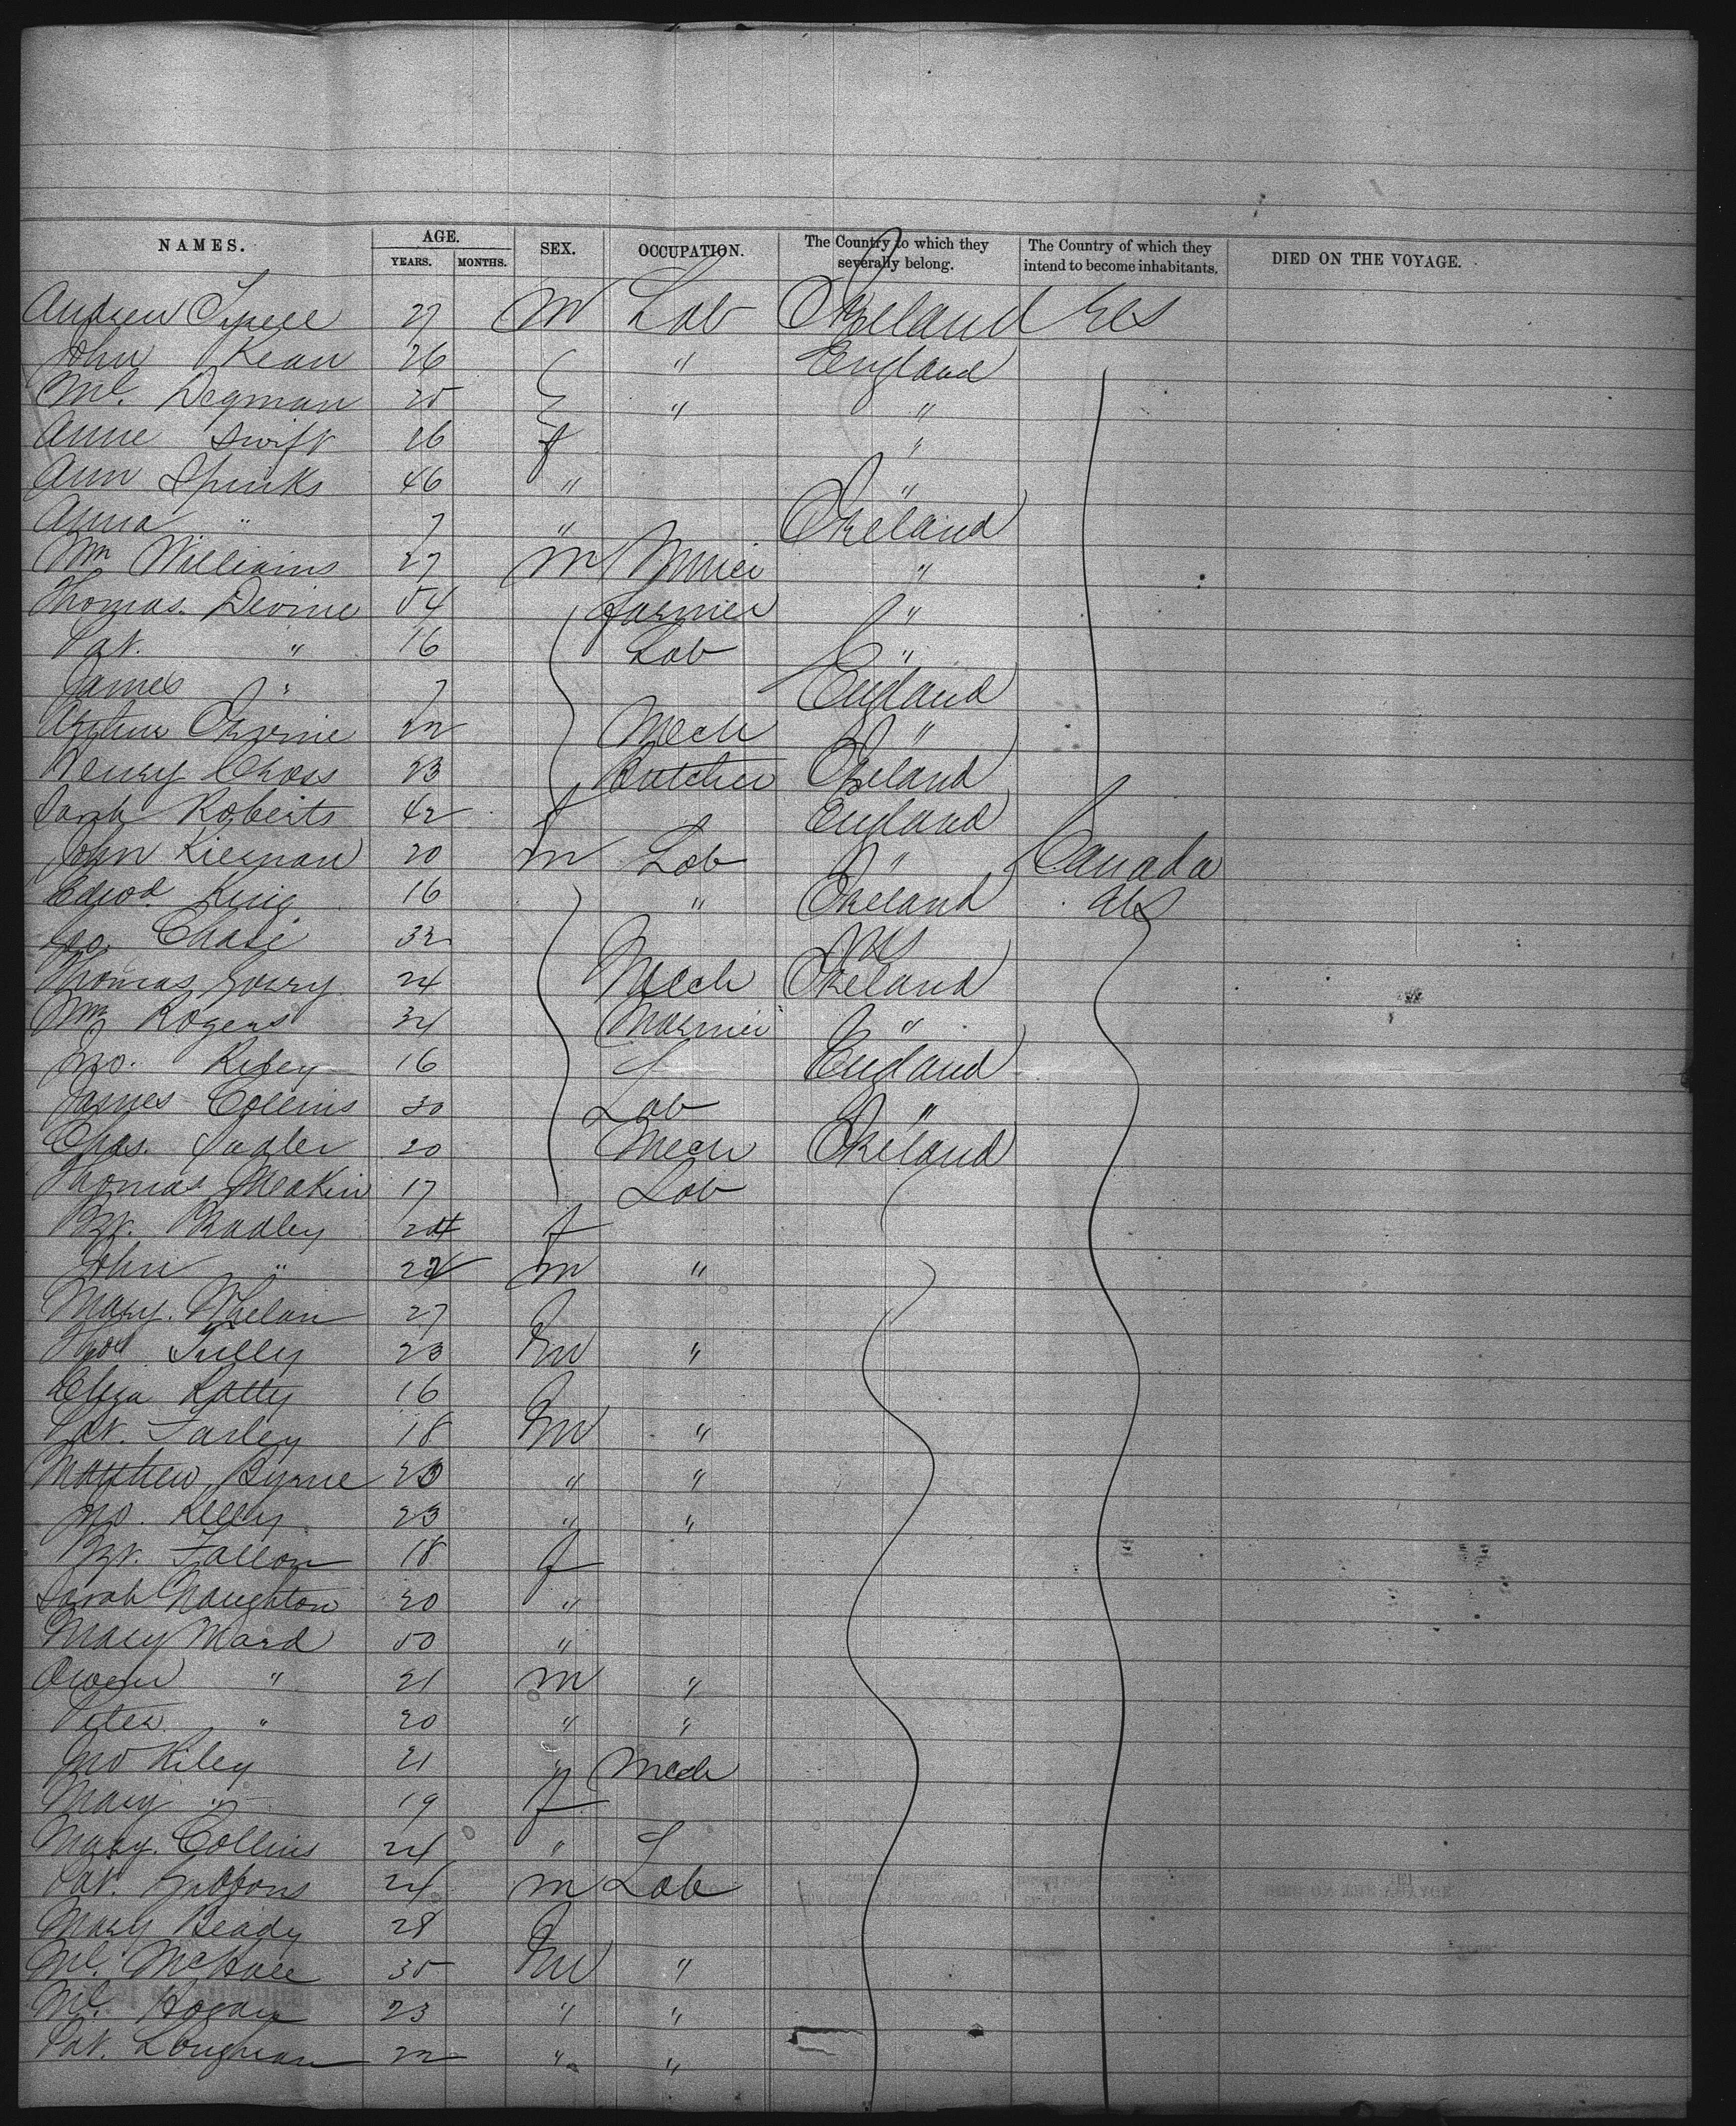 NAMES. AGE. SEX. OCCUPATION. The Country to which they severally belong. The Country of which they intend to become inhabitants. DIED ON THE VOYAGE.
YEARS. MONTHS.
Andrew 27 m Lab Ireland U S
John Kean 26 " England
Ml. Degman 25 " "
Anne Swift 16 f "
Ann Spinks 46 " "
Anna " 7 " Ireland
Wm Williams 27 m Miner "
Thomas Devine 54 Farmer "
Pat. " 16 Lab "
James " 7 England
22 Mech "
Henry Cross 23 Butcher Ireland
Sarah Roberts 42 f England
John Kiernan 20 m Lab " Canada
Edwd King 16 " Ireland U S
Jno. Chase 32 U S
Thomas 24 Mech Ireland
Wm Rogers 34 "
Jno. 16 England
James Collins 30 Lab "
Chas. Sadler 20 Mech Ireland
Thomas Meakin 17 Lab
Bgt. Bradley 24 f
John " m "
Mary Whelan 27
Thos Tully 23 m "
Eliza 16
Pat. Farley 18 m "
Matthew Byrne " "
Jno. Kelly 23 " "
Bgt. Fallon 18 f
Sarah Naughton 20 "
Mary Ward 50 "
Owen " 21 m "
Peter " 20 " "
Jno Riley 21 " Mech
Mary " 19 f
Mary Collins 24 "
Pat. Gibbons 24 m Lab
Mary 28
Ml. McHale 35 m "
Ml. Hogan 23 " "
Pat. Loughran 22 " "